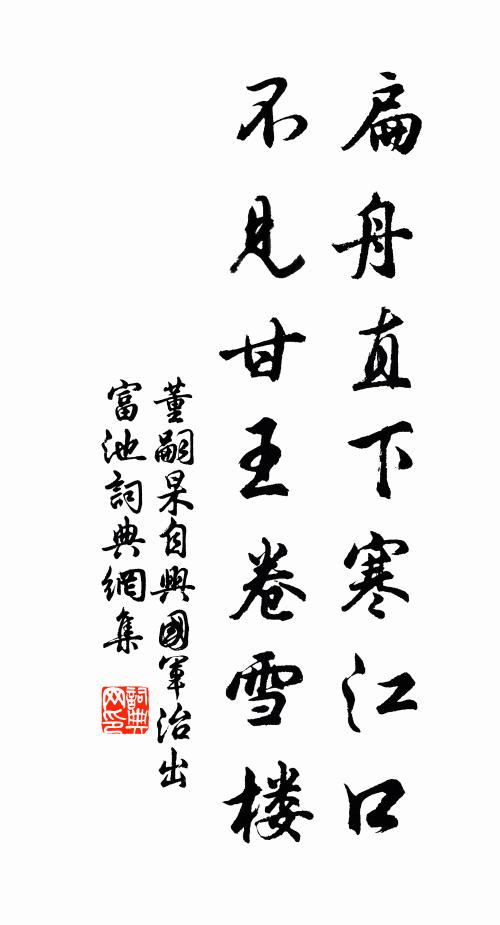 扁舟直下寒江口
不見甘王卷雪楼
董嗣杲自興國軍治出
富池詞典網集
詞典网印